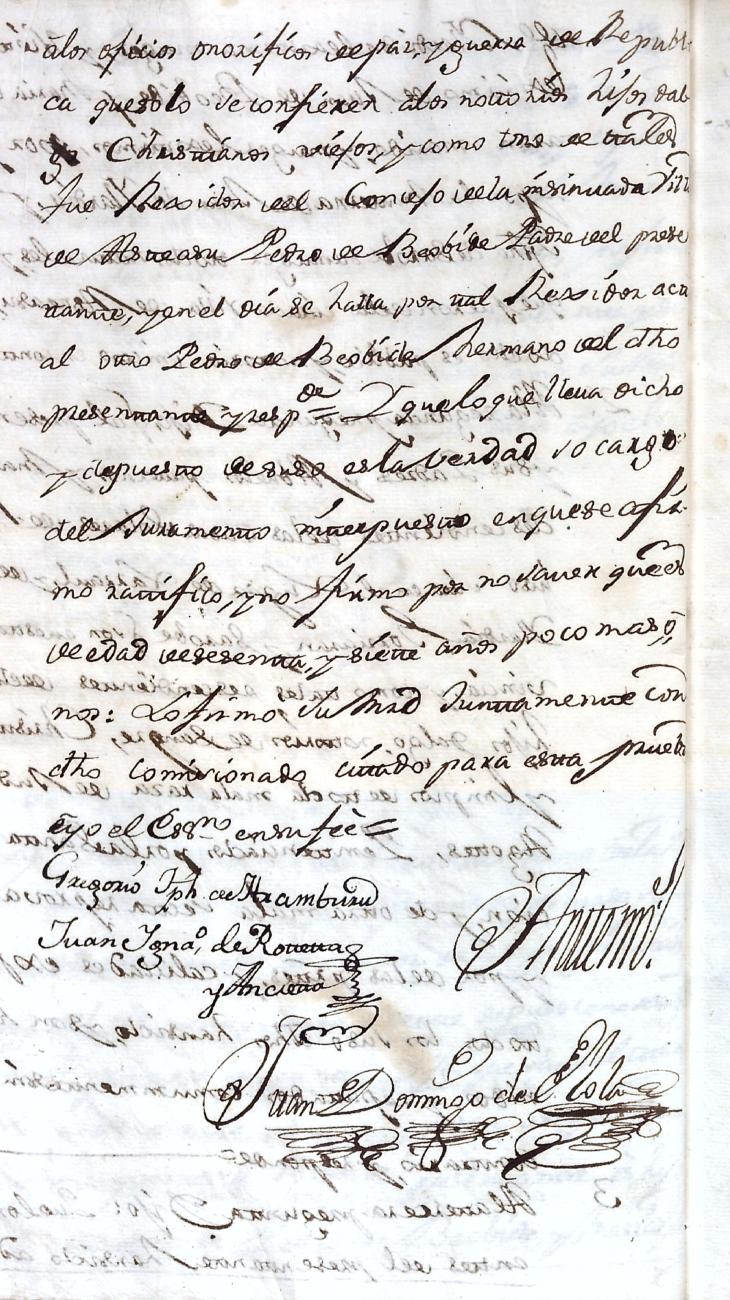 alos ofizios onorificos de paz, y guerra dese Republi
ca que solo se confieren alos nottorios hijosdal
go Christianos viejos, y como uno de tales
fue Rexidor del Conzejo de la insinuada Villa
de Asteasu Pedro de Beobide Padre del prese
ntante, y en el día se halla por tal Rexidor actu
al otro Pedro de Beobide hermano del dho
presenttante y resp.de = Y que lo que lleva dicho
y depuesto de suso es la verdad so cargo
del Juramento interpuesto en que se afir
mo ratifico, y no firmo por no saver que es
de edad de sesenta, y siette años poco mas o
nos: Lo firmo su Mrd Juntamente con
dho comisionado cittado para esta prueba
e yo el Essno en su fee =
Gregorio Jph de Aramburu
Juan Ignaº. de Rotetta
y Ancieta
Antemi.
Juan Domingo de Elola
3